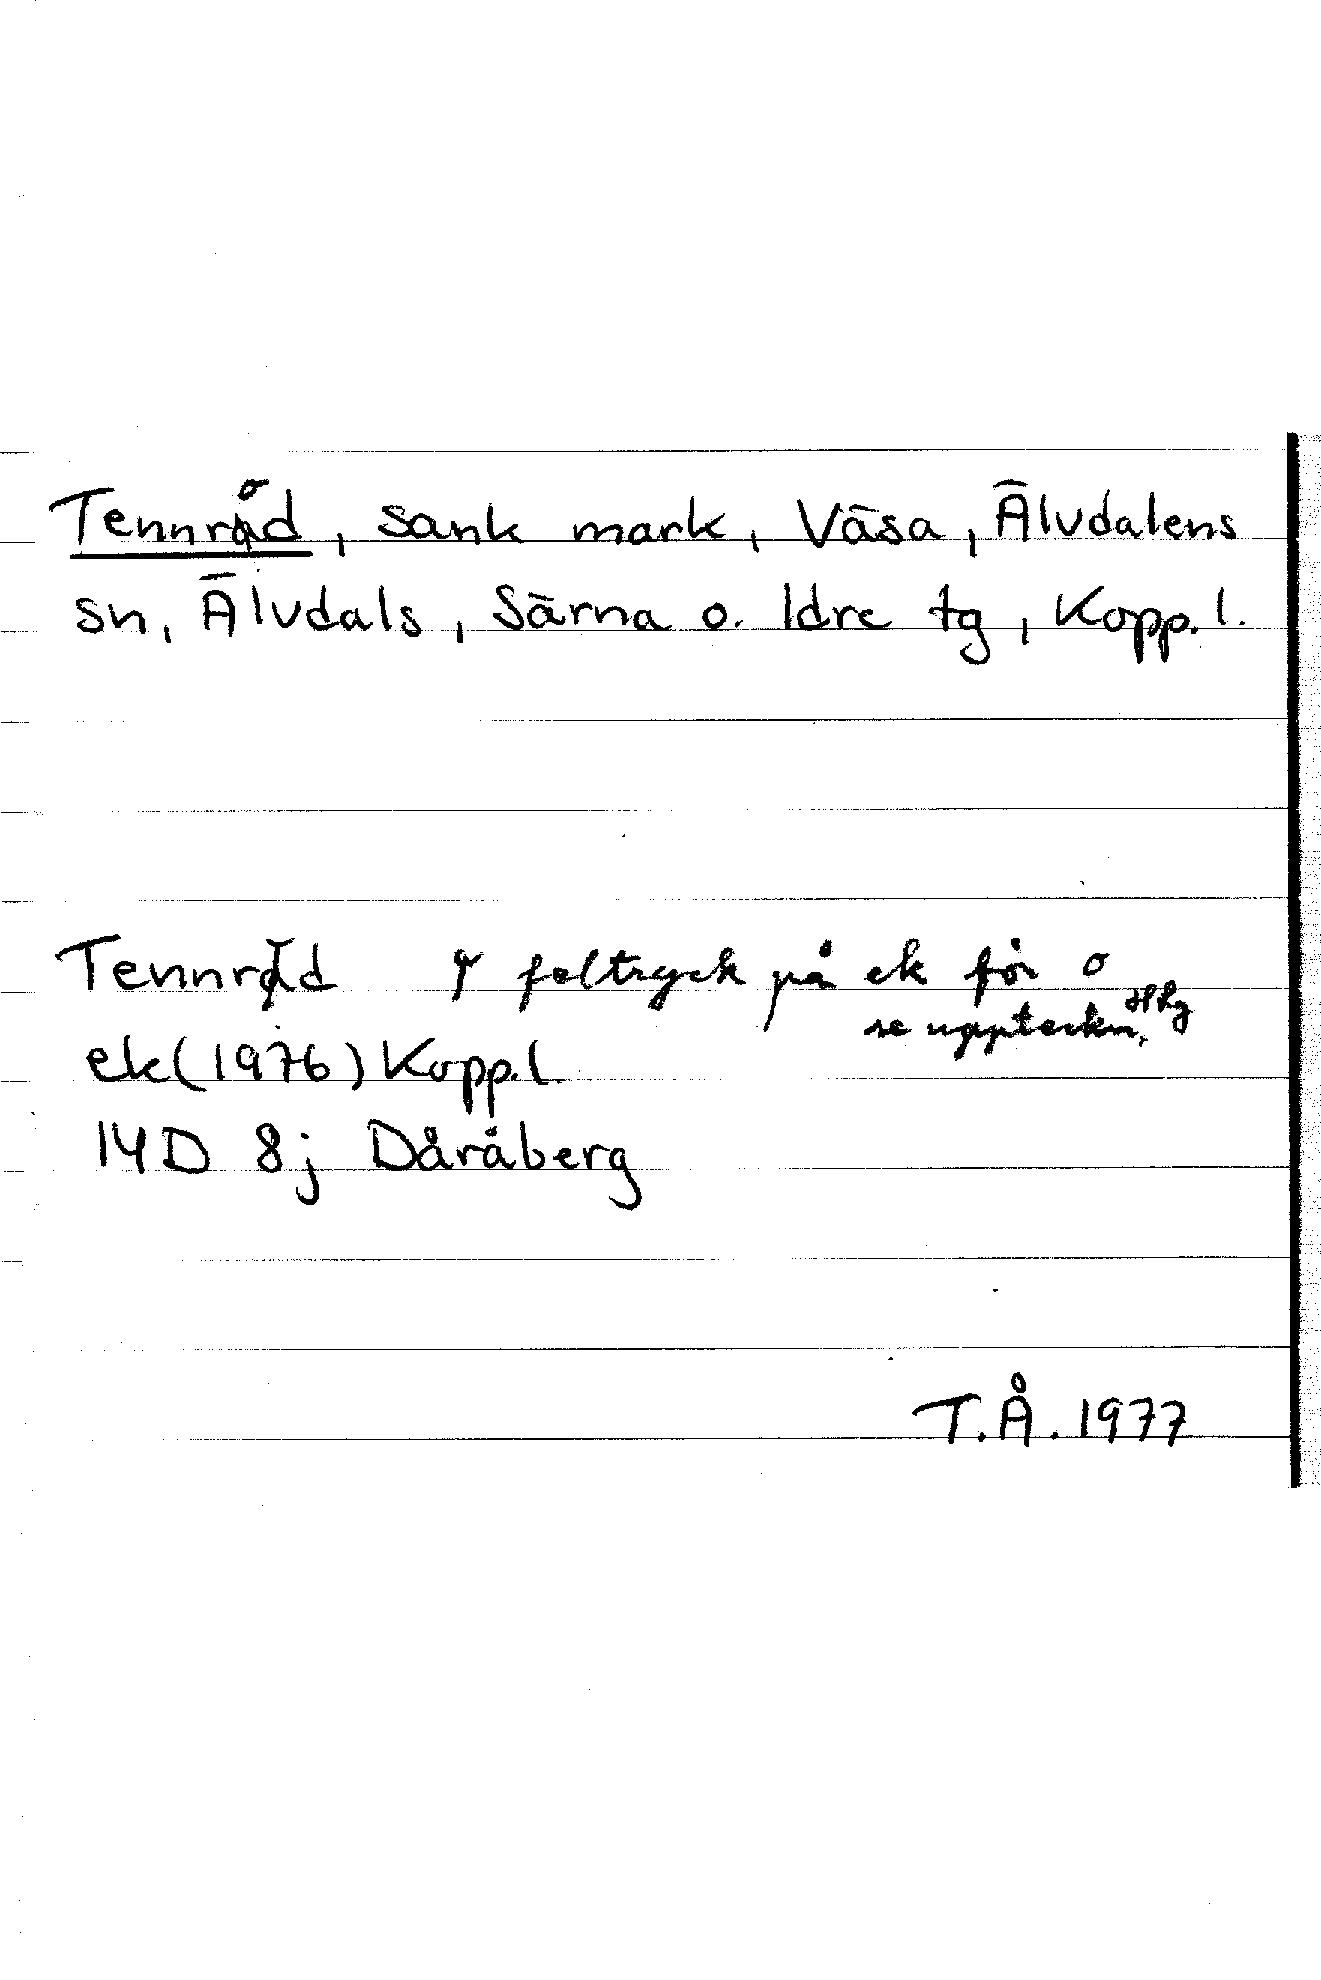 Tennråd, sank mark, Väsa, Älvdalens
sn, Älvdals, Särna o. Idre tg, Kopp. l.
Tennråd feltryck på ek för o
se uppteckn.
ek (1976) Kopp. l.
14D 8j Dåråberg
T.Å. 1977